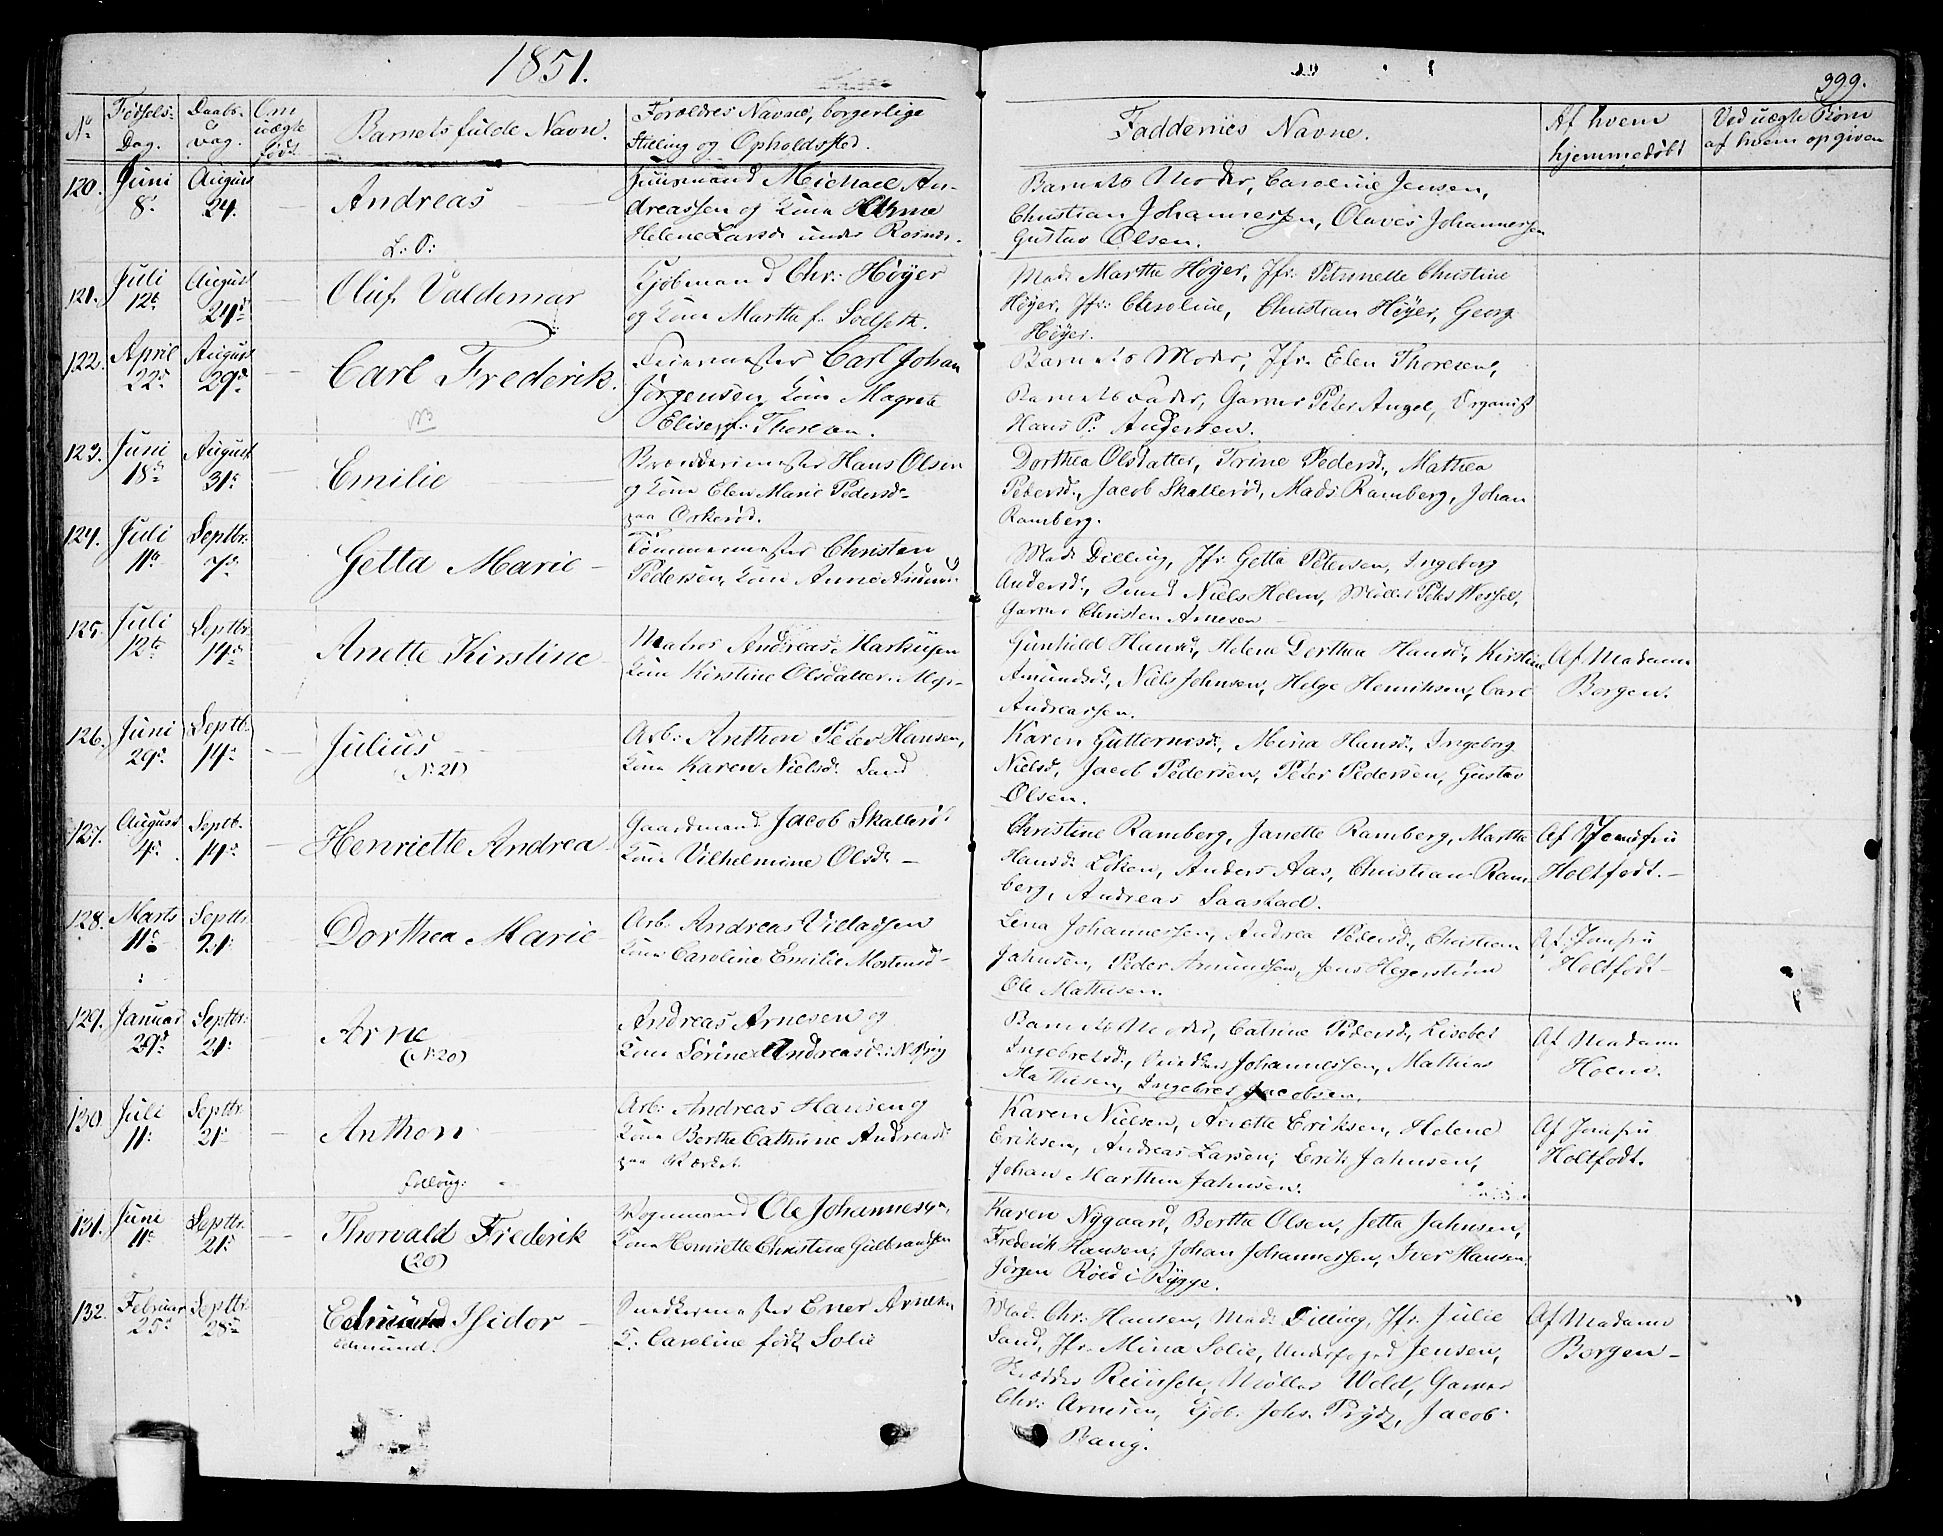 1851.
399.
No Fødsels- Dag. Daabs- Dag. Om uægte født. Barnets fulde Navn. Forældres Navne, borgerlige Stilling og Opholdssted. Faddernes Navne. Af hvem hjemmedøbt Ved uægte Børn af hvem opgiven
120. Juni 8. August 24. Andreas Huusmand Michael An-
dreassen og Kone Anne
Helene Larsd. under
Barnets Moder, Caroline Jensen,
Christian Johannessen, Olaves Johannessen
Gustav Olsen.
121. Juli 12te August 24de Oluf Valdemar Kjøbmand Chr: Höyer
og Kone Martha f.
Mad. Martha Höyer, Jfr. Petronelle Christine
Höyer, Jfr: Caroline, Christian Höyer, Georg
Höyer.
122. April 22de August 29de Carl Frederik. Feiermester Carl Johan
Jørgensen, Kone Magrete
Elise, f. Thoresen.
Barnets Moder, Jfr. Elen Thoresen,
Barnets Fader, Garver Peter Angel, Organist
Hans P. Andersen.
123. Juni 18de August 31te Emilie Brænderimester Hans Olsen
og Kone Elen Marie Pedersd.
paa Orkerød.
Dorthea Olsdatter, Trine Pedersd., Mathea
Petersd., Jacob Skallerød, Mads Ramberg, Johan
Ramberg.
124. Juli 11te Septbr. 7de Getta Marie Tømmermester Christen
Pedersen, Kone Anne
Mad. Dilling, Jfr. Getta Petersen, Ingeborg
Andersd., Smed Niels Holm, Møller Peter Wessel,
Garver Christen Arnesen
125. Juli 12te Septbr. 14de Anette Kirstine Matros Andreas Markusen
Kone Kirstine Olsdatter.
Gunhild Hansd., Helene Dorthea Hansd., Kirstine
Amundsd., Niels Johnsen, Helge Henriksen, Carl
Andreassen.
Af Madame
Borgen.
126. Juni 29de Septb. 14de Julius
(No 21)
Arb: Anthon Peter Hansen,
Kone Karen Nielsd. Sand
Karen Guttormsd., Mina Hansd., Ingeborg
Nielsd., Jacob Pedersen, Peter Pedersen, Gustav
Olsen.
127. August 4de Septb. 14de Henriette Andrea Gaardmand Jacob Skallerød
Kone Vilhelmine Olsd.
Christine Ramberg, Janette Ramberg, Martha
Hansd. Løken, Anders Aas, Christian Ram-
berg, Andreas Saastad.
Af Jomfru
Holtfodt.
128. Marts 11te Septbr. 21. Dorthea Marie Arb: Andreas Villadsen
Kone Caroline Emilie Mortensd.
Lina Johannessen, Andrea Pedersd., Christian
Jahnsen, Peder Amundsen, Jens Hegerstrøm
Ole Mathisen.
Af Jomfru
Holtfodt
129. Januar 29de Septbr. 21. Arne
(No 20)
Andreas Arnesen og
Kone Sørine Andreasd.
Barnets Moder, Catrine Pedersd., Lisebet
Ingebretsd., Johannessen, Mathias
Mathisen, Ingebret Jacobsen.
Af Madame
Holm.
130 Juli 11. Septbr. 21. Anthon Arb: Andreas Hansen og
Kone Berthe Cathrine Andreasd.
paa
Karen Nielsen, Anette Eriksen, Helene
Eriksen, Andreas Larsen, Erik Jahnsen,
Johan Marthin Jahnsen.
Af Jomfru
Holtfodt.
131. Juni 11te Septbr. 21. Thorvald Frederik
(20)
Vognmand Ole Johannesen,
Kone Henriette Christine Gulbrandsen
Karen Nygaard, Berthe Olsen, Jetta Jahnsen,
Frederik Hansen, Johan Johannessen, Iver Hansen
Jørgen Röed i Rygge.
132. Februar 25de Septbr. 28de Isidor
Edmund.
Snedkermester Ener Arnesen
K. Caroline født Solie
Mad. Chr: Hansen, Mad. Dilling, Jfr. Julie
Sand, Jfr. Mina Solie, Underfoged Jensen,
Skrædder Møller Wold, Garver
Chr: Arnesen, Kjöb. Johs. Prydz, Jacob
Bang.
Af Madame
Borgen